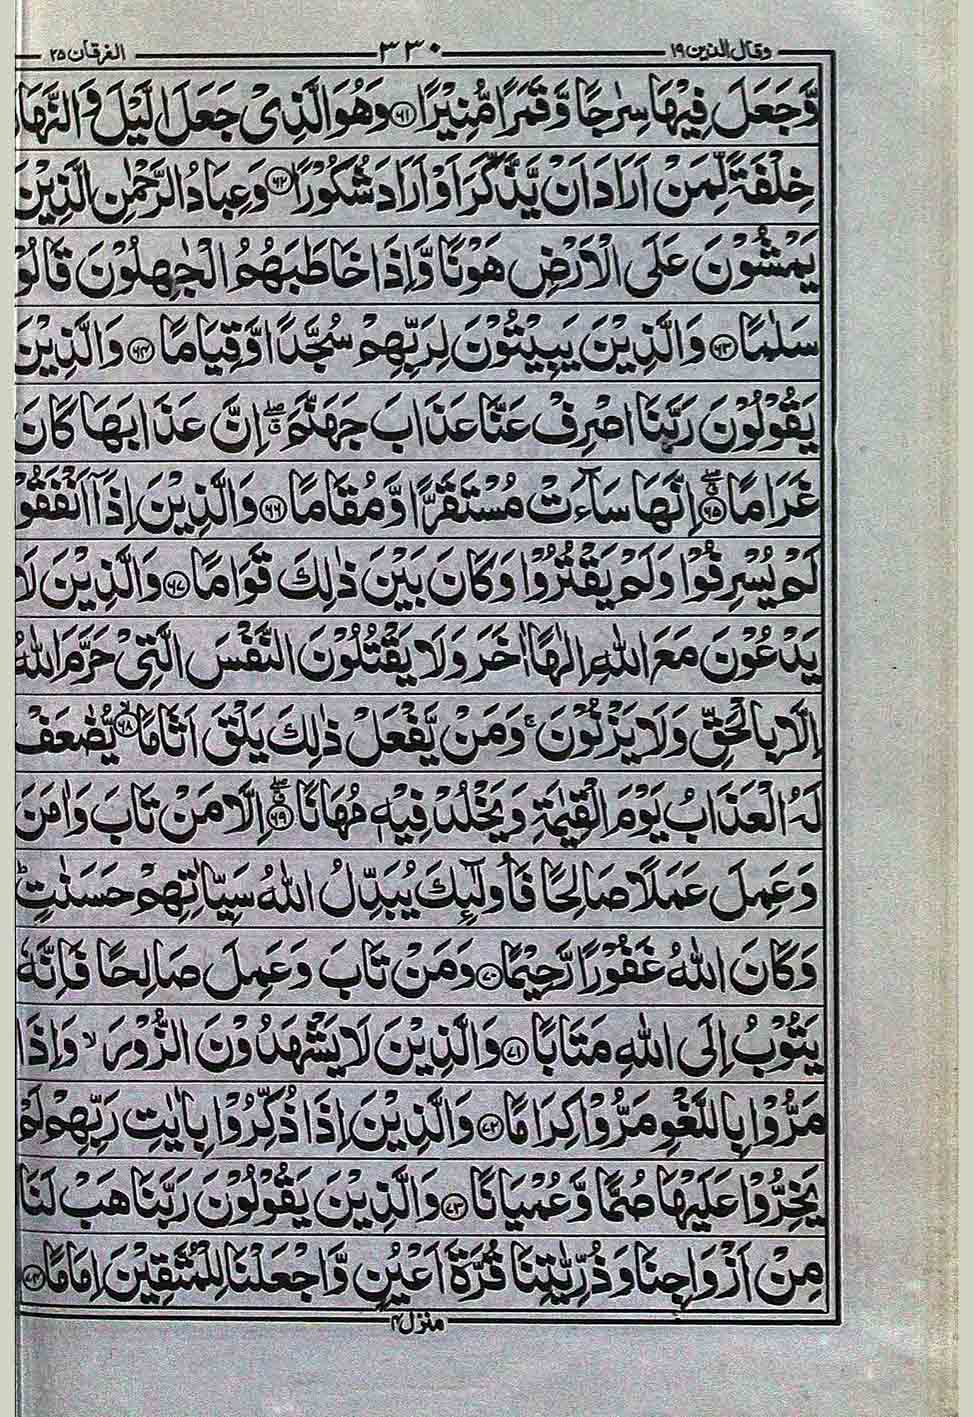 وقال الذین ۱۹ ۳۳۰ الفرقان ۲۵
وَّجَعَلَ فِیْهَا سِرٰجًا وَّقَمَرًا مُّنِیْرًا ﴿۶۱﴾ وَهُوَ الَّذِیْ جَعَلَ الَّیْلَ وَالنَّهَارَ
خِلْفَةً لِّمَنْ اَرَادَ اَنْ یَّذَّكَّرَ اَوْ اَرَادَ شُكُوْرًا ﴿۶۲﴾ وَعِبَادُ الرَّحْمٰنِ الَّذِیْنَ
یَمْشُوْنَ عَلَی الْاَرْضِ هَوْنًا وَّاِذَا خَاطَبَهُمُ الْجٰهِلُوْنَ قَالُوْا
سَلٰمًا ﴿۶۳﴾ وَالَّذِیْنَ یَبِیْتُوْنَ لِرَبِّهِمْ سُجَّدًا وَّقِیَامًا ﴿۶۴﴾ وَالَّذِیْنَ
یَقُوْلُوْنَ رَبَّنَا اصْرِفْ عَنَّا عَذَابَ جَهَنَّمَ ۖۗ اِنَّ عَذَابَهَا كَانَ
غَرَامًا ﴿۶۵﴾ ۖۗ اِنَّهَا سَآءَتْ مُسْتَقَرًّا وَّمُقَامًا ﴿۶۶﴾ وَالَّذِیْنَ اِذَاۤ اَنْفَقُوْا
لَمْ یُسْرِفُوْا وَلَمْ یَقْتُرُوْا وَكَانَ بَیْنَ ذٰلِكَ قَوَامًا ﴿۶۷﴾ وَالَّذِیْنَ لَا
یَدْعُوْنَ مَعَ اللّٰهِ اِلٰهًا اٰخَرَ وَلَا یَقْتُلُوْنَ النَّفْسَ الَّتِیْ حَرَّمَ اللّٰهُ
اِلَّا بِالْحَقِّ وَلَا یَزْنُوْنَ ۚ وَمَنْ یَّفْعَلْ ذٰلِكَ یَلْقَ اَثَامًا ﴿۶۸﴾ ۙ یُّضٰعَفْ
لَهُ الْعَذَابُ یَوْمَ الْقِیٰمَةِ وَیَخْلُدْ فِیْهٖ مُهَانًا ﴿۶۹﴾ ۖۗ اِلَّا مَنْ تَابَ وَاٰمَنَ
وَعَمِلَ عَمَلًا صَالِحًا فَاُولٰٓئِكَ یُبَدِّلُ اللّٰهُ سَیِّاٰتِهِمْ حَسَنٰتٍ ؕ
وَكَانَ اللّٰهُ غَفُوْرًا رَّحِیْمًا ﴿۷۰﴾ وَمَنْ تَابَ وَعَمِلَ صَالِحًا فَاِنَّهٗ
یَتُوْبُ اِلَی اللّٰهِ مَتَابًا ﴿۷۱﴾ وَالَّذِیْنَ لَا یَشْهَدُوْنَ الزُّوْرَ ۙ وَاِذَا
مَرُّوْا بِاللَّغْوِ مَرُّوْا كِرَامًا ﴿۷۲﴾ وَالَّذِیْنَ اِذَا ذُكِّرُوْا بِاٰیٰتِ رَبِّهِمْ لَمْ
یَخِرُّوْا عَلَیْهَا صُمًّا وَّعُمْیَانًا ﴿۷۳﴾ وَالَّذِیْنَ یَقُوْلُوْنَ رَبَّنَا هَبْ لَنَا
مِنْ اَزْوَاجِنَا وَذُرِّیّٰتِنَا قُرَّةَ اَعْیُنٍ وَّاجْعَلْنَا لِلْمُتَّقِیْنَ اِمَامًا ﴿۷۴﴾
منزل ۴